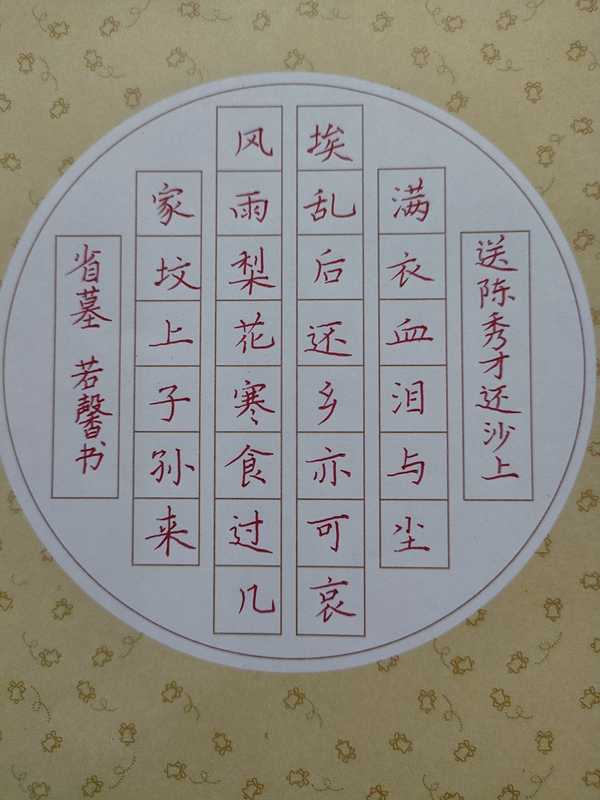 送陈秀才还沙上
满衣血泪与尘
埃乱后还乡亦可哀
风雨梨花寒食过几
家坟上子孙来
省墓 若馨书